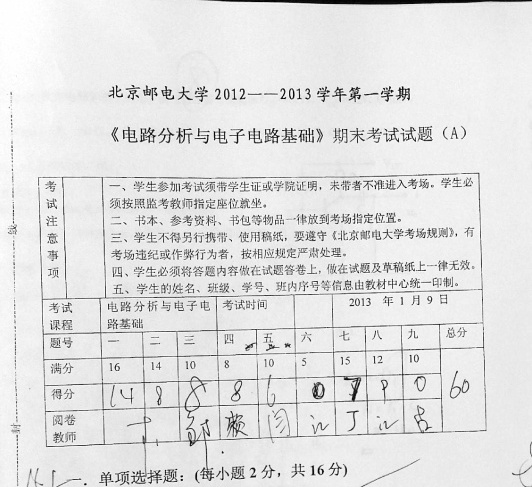 北京邮电大学 2012——2013 学年第一学期
《电路分析与电子电路基础》期末考试试题（A）
考试注意事项
一、学生参加考试须带学生证或学院证明，未带者不准进入考场。学生必
须按照监考教师指定座位就坐。
二、书本、参考资料、书包等物品一律放到考场指定位置。
三、学生不得另行携带、使用稿纸，要遵守《北京邮电大学考场规则》，有
考场违纪或作弊行为者，按相应规定严肃处理。
四、学生必须将答题内容做在试题答卷上，做在试题及草稿纸上一律无效。
五、学生的姓名、班级、学号、班内序号等信息由教材中心统一印制。
考试课程 电路分析与电子电路基础 考试时间 2013 年 1 月 9 日
题号 一 二 三 四 五 六 七 八 九 总分
满分 16 14 10 8 10 5 15 12 10
得分 14 8 8 8 6 0 7 0 60
阅卷教师
一. 单项选择题：(每小题 2 分，共 16 分)
线
封